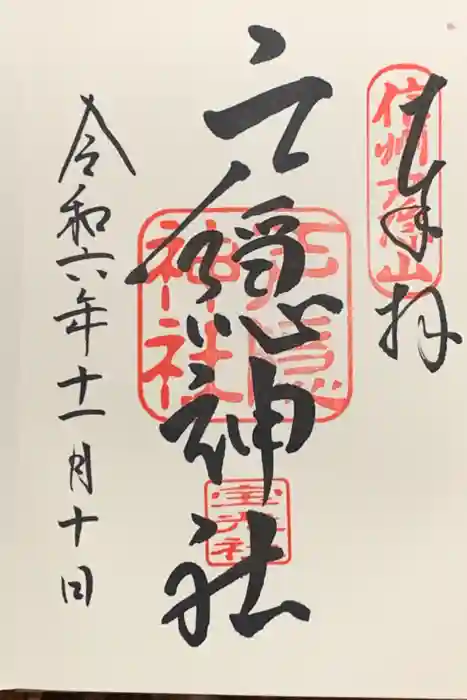 奉拝
信州戸隠山
戸隠神社
戸隠
神社
宝光社
令和六年十一月十日